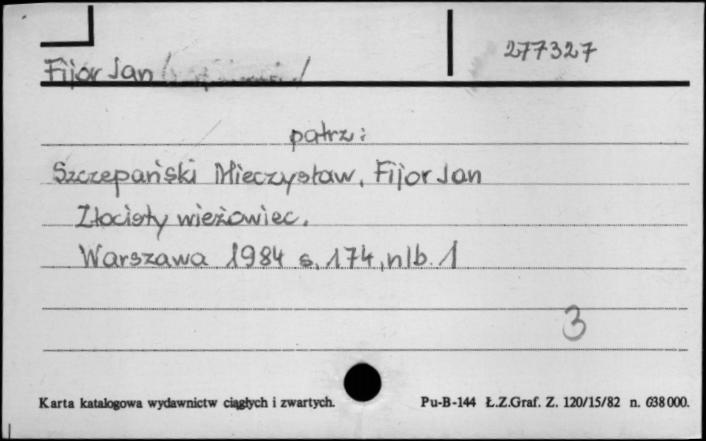 277327
Fijor Jan
patrz:
Szczepański Mieczysław, Fijor Jan
Złocisty wieżowiec.
Warszawa 1984 s. 174, nlb. 1
3
Karta katalogowa wydawnictw ciągłych i zwartych. Pu-B-144 Ł.Z.Graf. Z. 120/15/82 n. 638000.